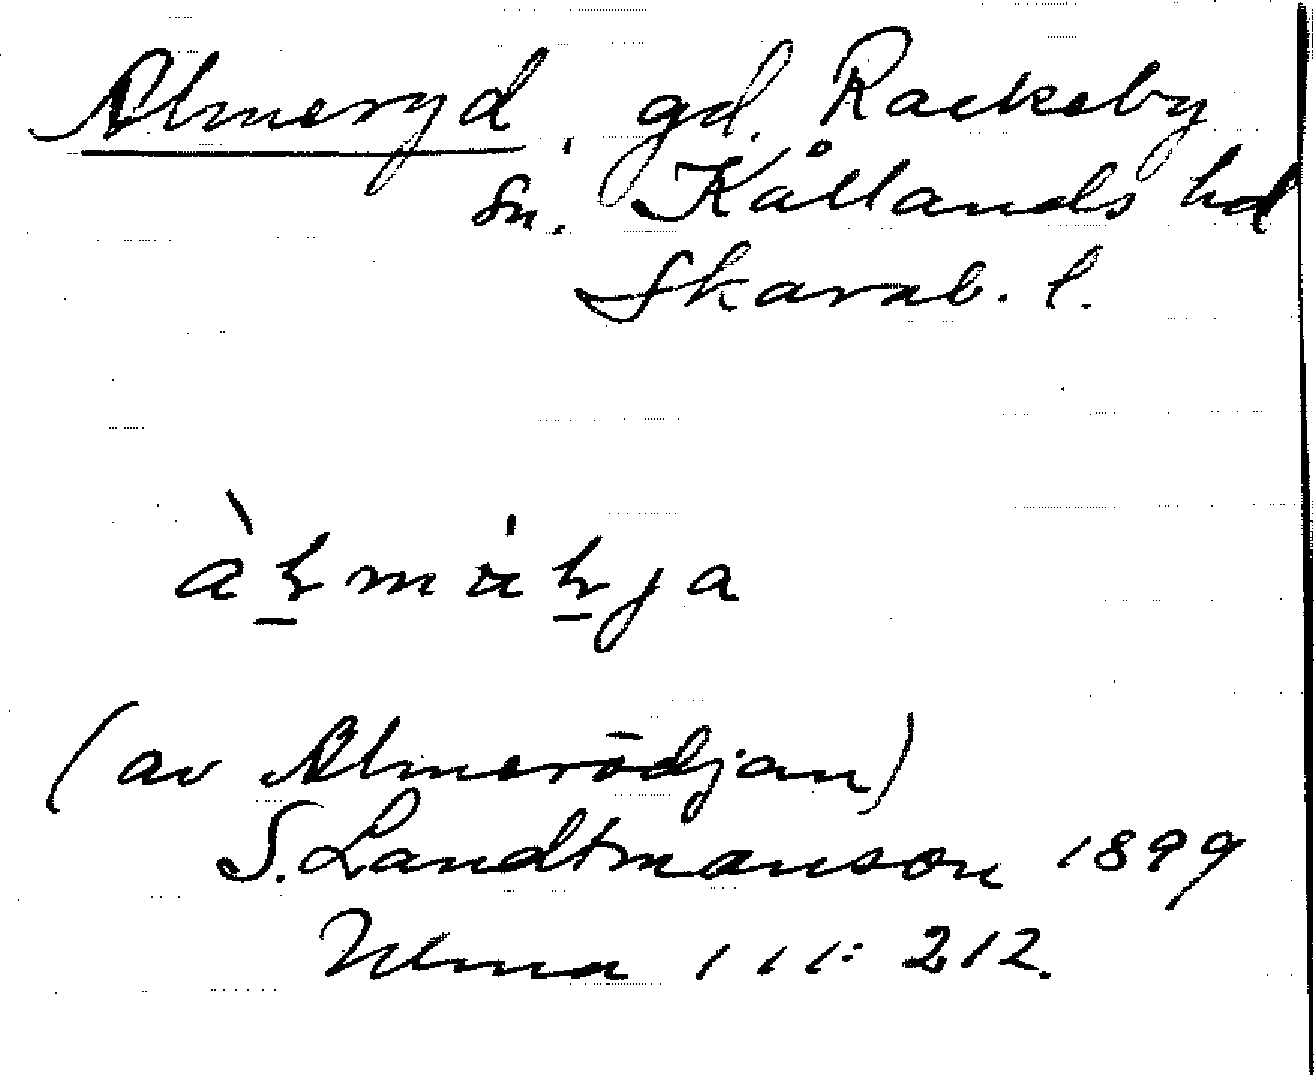 Almeryd, gd. Rackeby
sn. Kållands hd
Skarab. l.
(av Almerödjan)
S. Landtmanson 1899
Ulma 111:212.